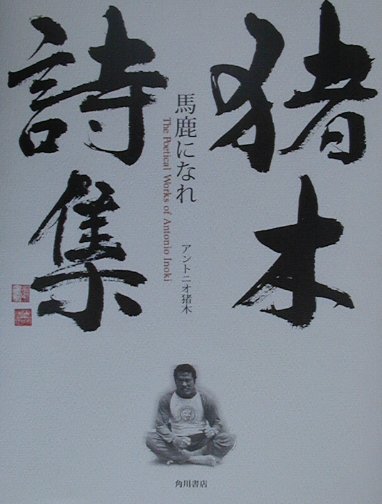 猪木
詩集
馬鹿になれ
The Poetical Works of Antonio Inoki
アントニオ猪木
角川書店